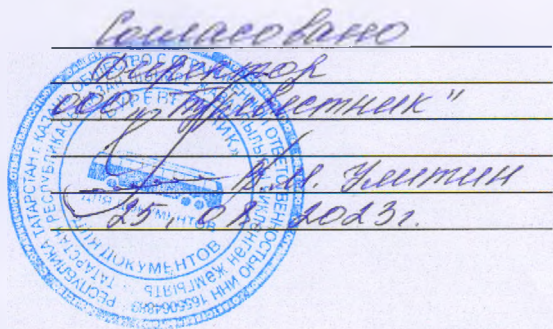 Согласовано
Директор
ООО "Буревестник"
В.М. Улитин
25.08.2023г.
РЕСПУБЛИКА ТАТАРСТАН г. КАЗАНЬ ОБЩЕСТВО С ОГРАНИЧЕННОЙ ОТВЕТСТВЕННОСТЬЮ
"БУРЕВЕСТНИК"
ДЛЯ ДОКУМЕНТОВ